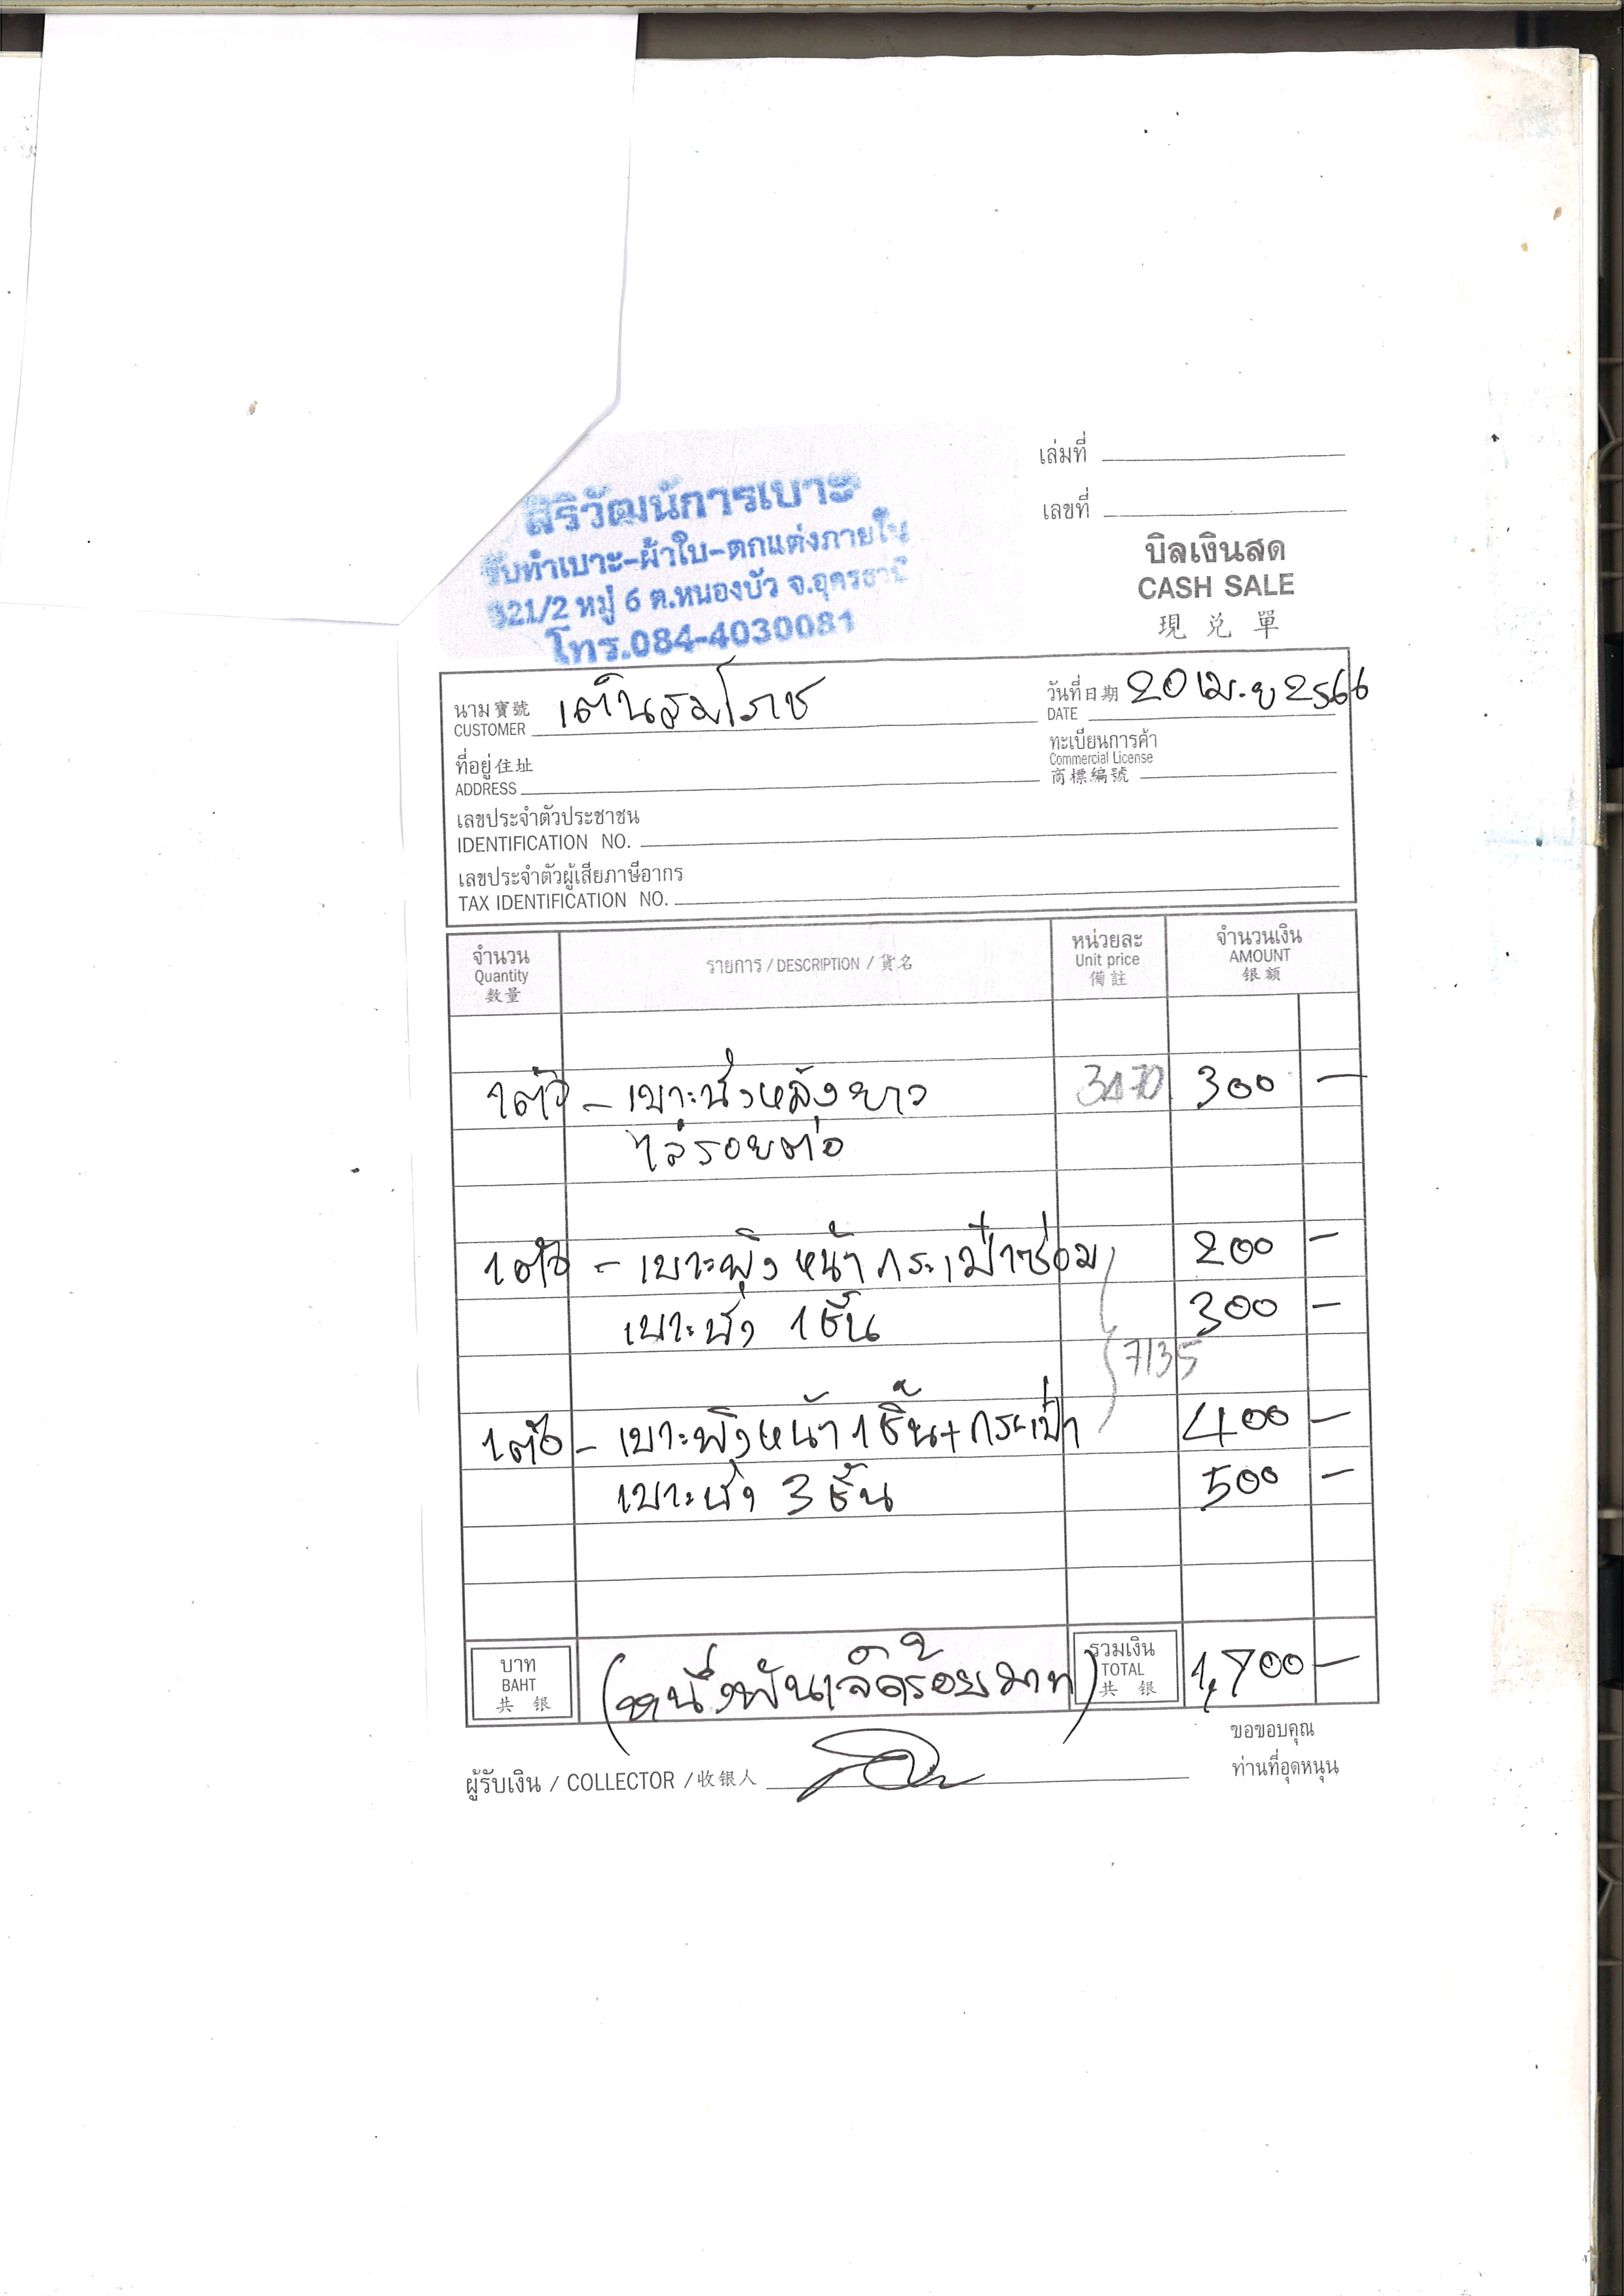 เล่มที่
เลขที่
สิริวัฒน์การเบาะ
รับทำเบาะ-ผ้าใบ-ตกแต่งภายใน
321/2 หมู่ 6 ต.หนองบัว จ.อุดรธานี
โทร.084-4030081
บิลเงินสด
CASH SALE
現兑單
นาม寶號 CUSTOMER
วันที่日期 DATE 20 เม.ย 2566
ที่อยู่住址 ADDRESS
ทะเบียนการค้า
Commercial License
商標編號
เลขประจำตัวประชาชน
IDENTIFICATION NO.
เลขประจำตัวผู้เสียภาษีอากร
TAX IDENTIFICATION NO.
จำนวน Quantity 数量 รายการ / DESCRIPTION / 貨名 หน่วยละ Unit price 備註 จำนวนเงิน AMOUNT 银额
1 ตัว - เบาะนั่งหลังยาว 300 -
ใส่รอยต่อ
1 ตัว - เบาะพิง หน้า กระเป๋าซ่อม 200 -
เบาะนั่ง 1 ชิ้น 300 -
7135
1 ตัว - เบาะพิงหน้า 1 ชิ้น + กระเป๋า 400 -
เบาะนั่ง 3 ชิ้น 500 -
บาท BAHT 共银 (หนึ่งพันเจ็ดร้อยบาท) รวมเงิน TOTAL 共银 1,700 -
ผู้รับเงิน / COLLECTOR / 收银人
ขอขอบคุณ
ท่านที่อุดหนุน